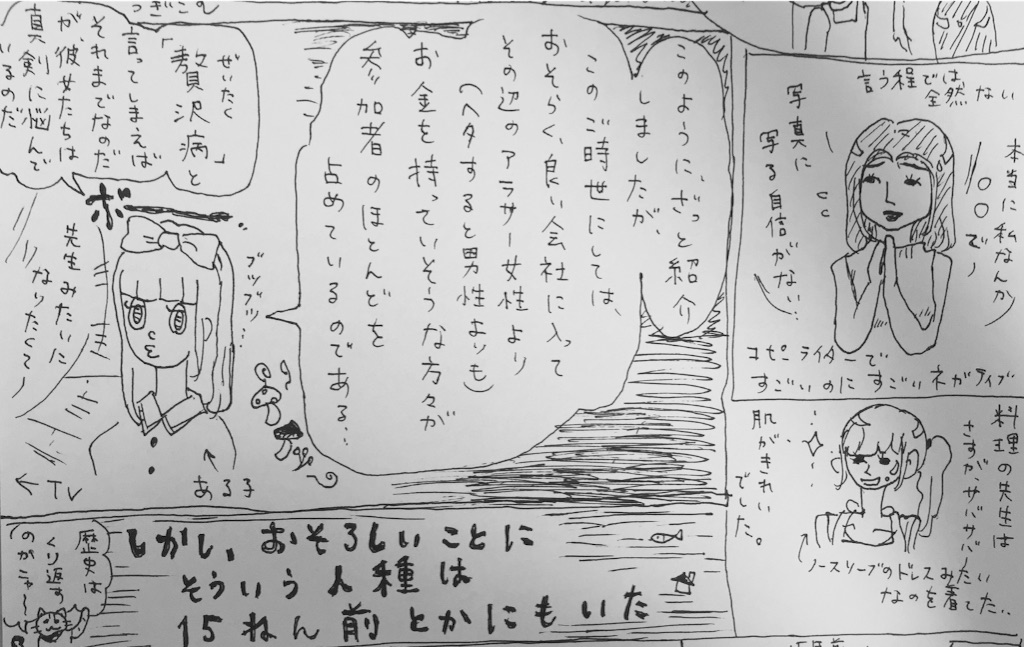 本当に私なんか
〇〇で〜
言う程では
全然ない
写真に
写る自信がない…
コピーライターで
すごいのにすごいネガティブ
料理の先生は
さすが、サバサバ〜
肌がきれい
でした。
ノースリーブのドレスみたい
なのを着てた、、
このように、ざっと紹介
しましたが、
このご時世にしては、
おそらく、良い会社に入って
その辺のアラサー女性より
(ヘタすると男性よりも)
お金を持っていそうな方々が
参加者のほとんどを
占めているのである…
ブツブツ…
つぎこむ
ぜいたく
「贅沢病」と
言ってしまえば
それまでなのだ
が、彼女たちは
真剣に悩んで
いるのだ
ボー
先生みたいに
なりたくて〜
ある子
←TV
しかし、おそろしいことに
そういう人種は
15ねん前とかにもいた
歴史は
くり返す
のがニャ〜